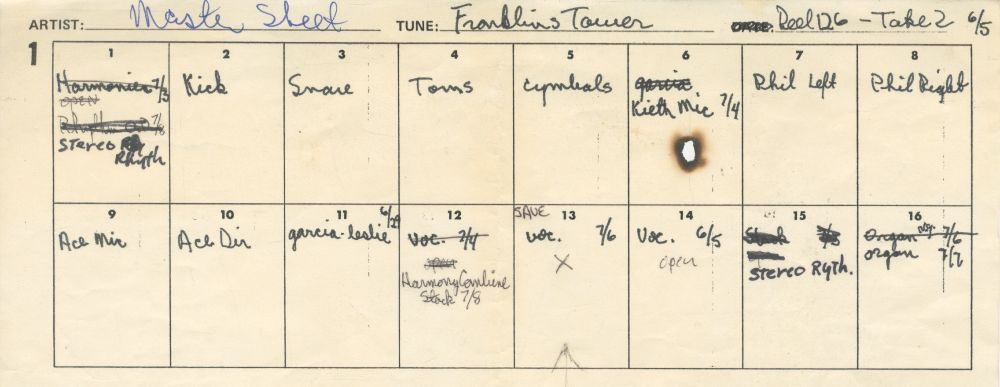 ARTIST: Master Sheet TUNE: Franklins Tower Reel 126 - Take 2 6/5
1
1 2 3 4 5 6 7 8
Harmonies 7/3
OPEN
7/8
Stereo
Rhyth
Kick
Snare
Toms
Cymbals
garcia
Kieth Mic 7/4
Phil Left
Phil Right
9 10 11 12 13 14 15 16
Ace Mic
Ace Dir
garcia-leslie 6/29
Voc. 7/4
open
Harmony Combine
Stack 7/8
SAVE
Voc. 7/6
X
Voc. 6/5
open
Stack 7/3
Stereo Ryth.
Organ 7/6
organ 7/7